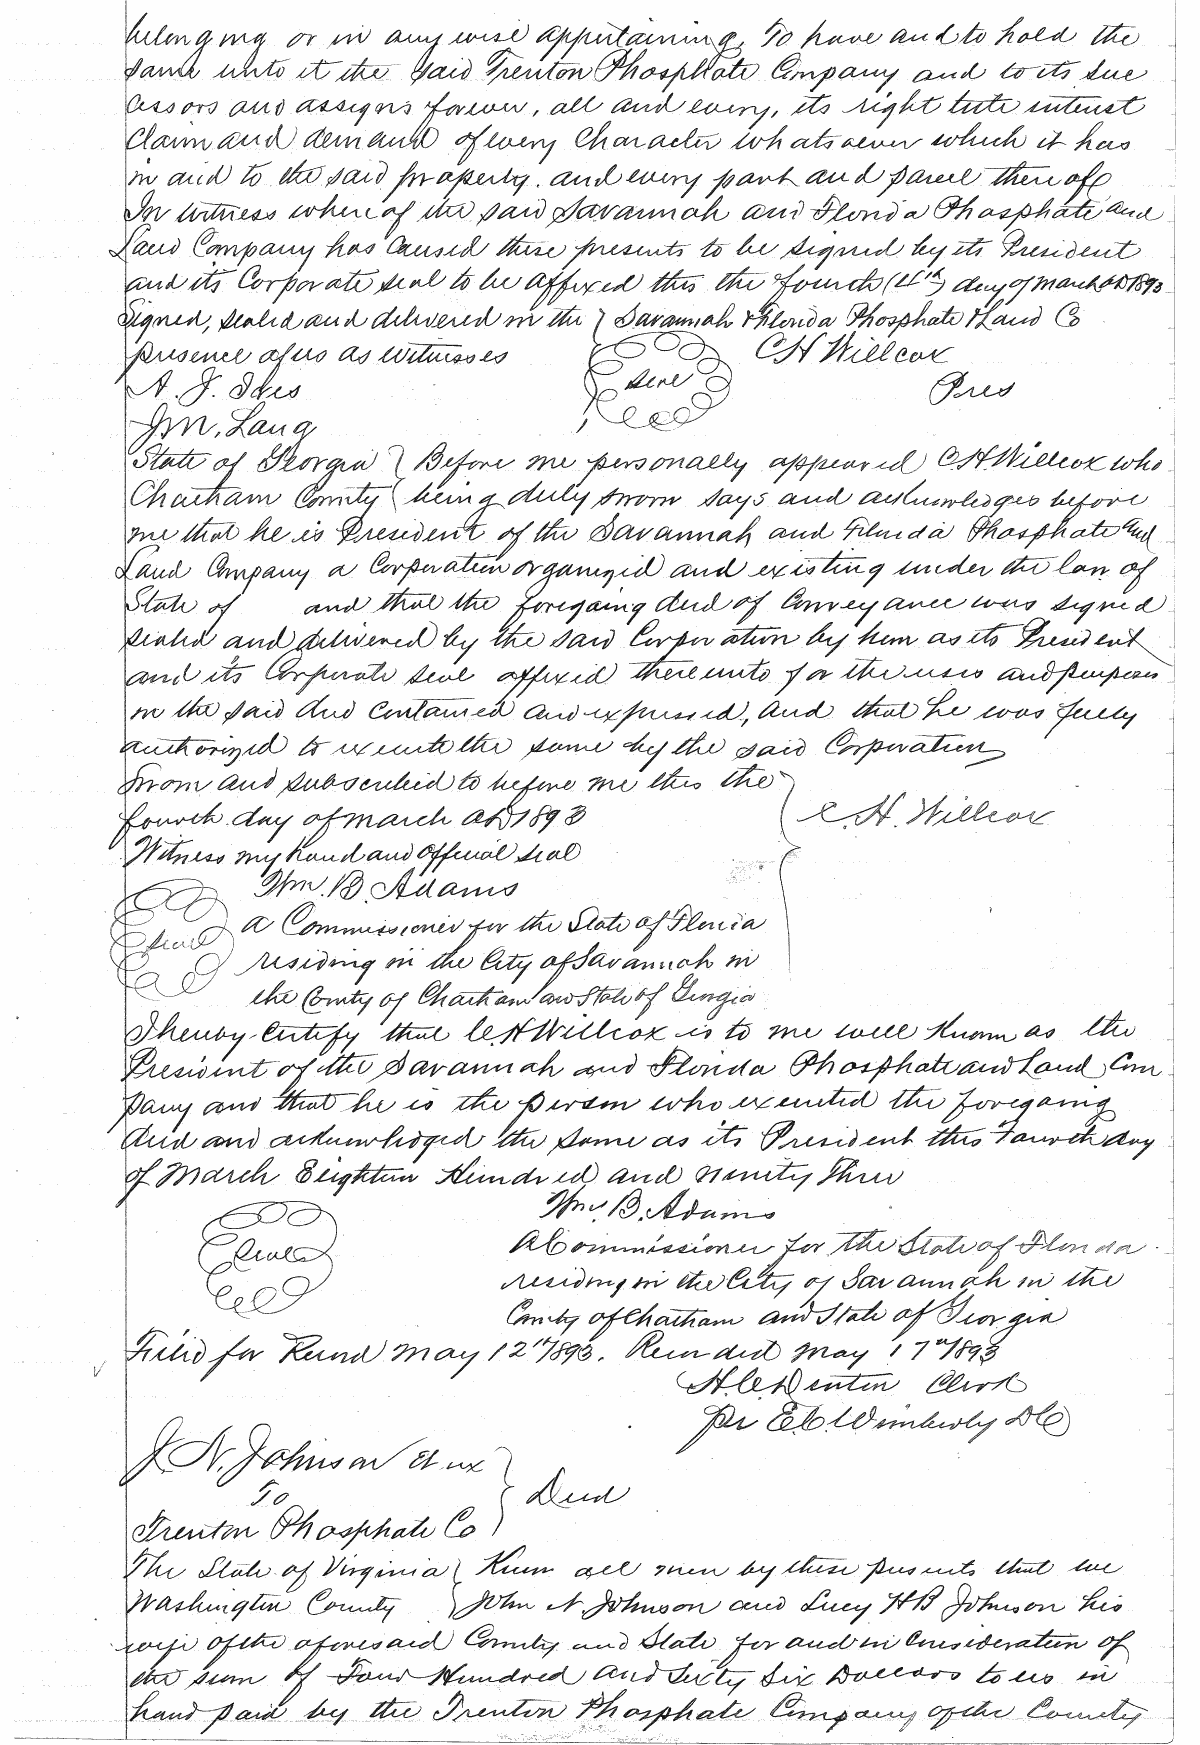 belonging or in any wise appertaining, To have and to hold the
same unto it the said Trenton Phosphate Company and to its suc
cessors and assigns forever, all and every, its right title interest
Claim and demand of every Character whatsoever which it has
in and to the said property. and every part and parcel thereof
In Witness whereof the said Savannah and Florida Phosphate and
Land Company has caused these presents to be signed by its President
and its Corporate seal to be affixed this the fourth (4th) day of March AD 1893
Signed, sealed and delivered in the } Savannah & Florida Phosphate & Land Co
presence of us as Witnesses
C H Willcox
seal
Pres
A. J. Ives
J M, Lang
State of Georgia } Before me personally appeared C H Willcox who
Chatham County { being duly sworn says and acknowledges before
me that he is President of the Savannah and Florida Phosphate and
Land Company a Corporation organized and existing under the law of
State of and that the foregoing deed of Conveyance was signed
sealed and delivered by the said Corporation by him as its President
and its Corporate seal affixed thereunto for the uses and purposes
in the said deed contained and expressed, and that he was fully
authorized to execute the same by the said Corporation
Sworn and subscribed to before me this the
fourth day of March AD 1893
C. H. Willcox
Witness my hand and official seal
Wm. B. Adams
seal
a Commissioner for the State of Florida
residing in the City of Savannah in
the County of Chatham and State of Georgia
I hereby Certify that C. H Willcox is to me well Known as the
President of the Savannah and Florida Phosphate and Land Com
pany and that he is the person who executed the foregoing
deed and acknowledged the same as its President this Fourth day
of March Eighteen Hundred and ninety three
Wm. B. Adams
seal
A Commissioner for the State of Florida
residing in the City of Savannah in the
County of Chatham and State of Georgia
Filed for Record May 12th 1893. Recorded May 17th 1893
H. C. Denton Clerk
Per E C Wimberly DC
J. N. Johnson et ux
To } Deed
Trenton Phosphate Co
The State of Virginia { Know all men by these presents that we
Washington County } John N. Johnson and Lucy H B Johnson his
wife of the aforesaid County and State for and in Consideration of
the sum of Four Hundred and Sixty Six Dollars to us in
hand paid by the Trenton Phosphate Company of the County